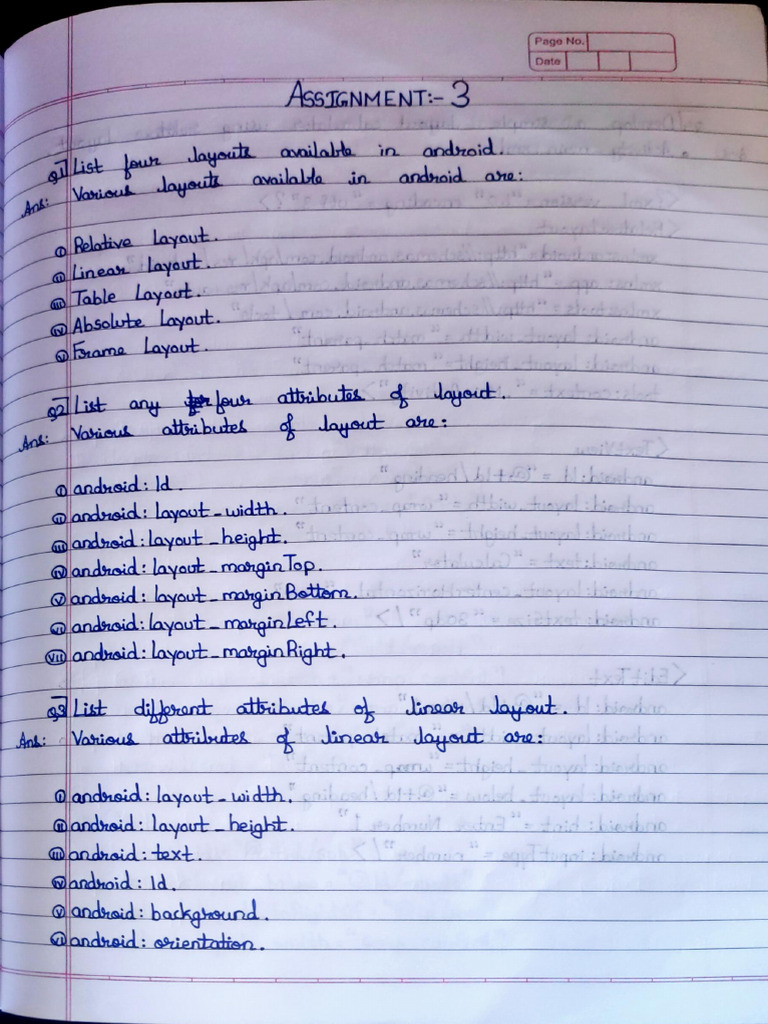 Page No.
Date
ASSIGNMENT:- 3
Q1 List four layouts available in android.
Ans: Various layouts available in android are:
(i) Relative Layout.
(ii) Linear Layout.
(iii) Table Layout.
(iv) Absolute Layout.
(v) Frame Layout.
Q2 List any four attributes of layout.
Ans: Various attributes of layout are:
(i) android: Id.
(ii) android: layout_width.
(iii) android: layout_height.
(iv) android: layout_marginTop.
(v) android: layout_marginBottom.
(vi) android: layout_marginLeft.
(vii) android: layout_marginRight.
Q3 List different attributes of linear layout.
Ans: Various attributes of linear layout are:
(i) android: layout_width.
(ii) android: layout_height.
(iii) android: text.
(iv) android: Id.
(v) android: background.
(vi) android: orientation.